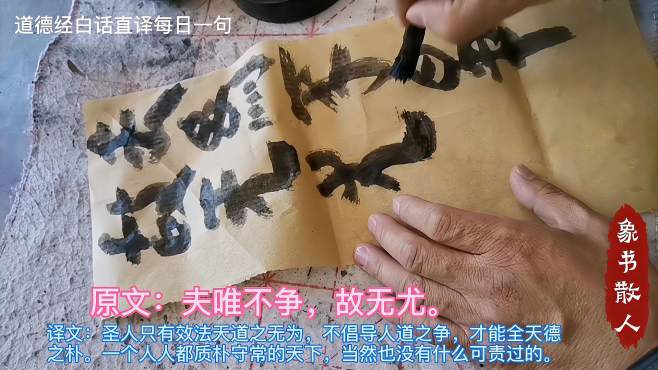 道德经白话直译每日一句
原文：夫唯不争，故无尤。
译文：圣人只有效法天道之无为，不倡导人道之争，才能全天德
之朴。一个人人都质朴守常的天下，当然也没有什么可责过的。
象书散人